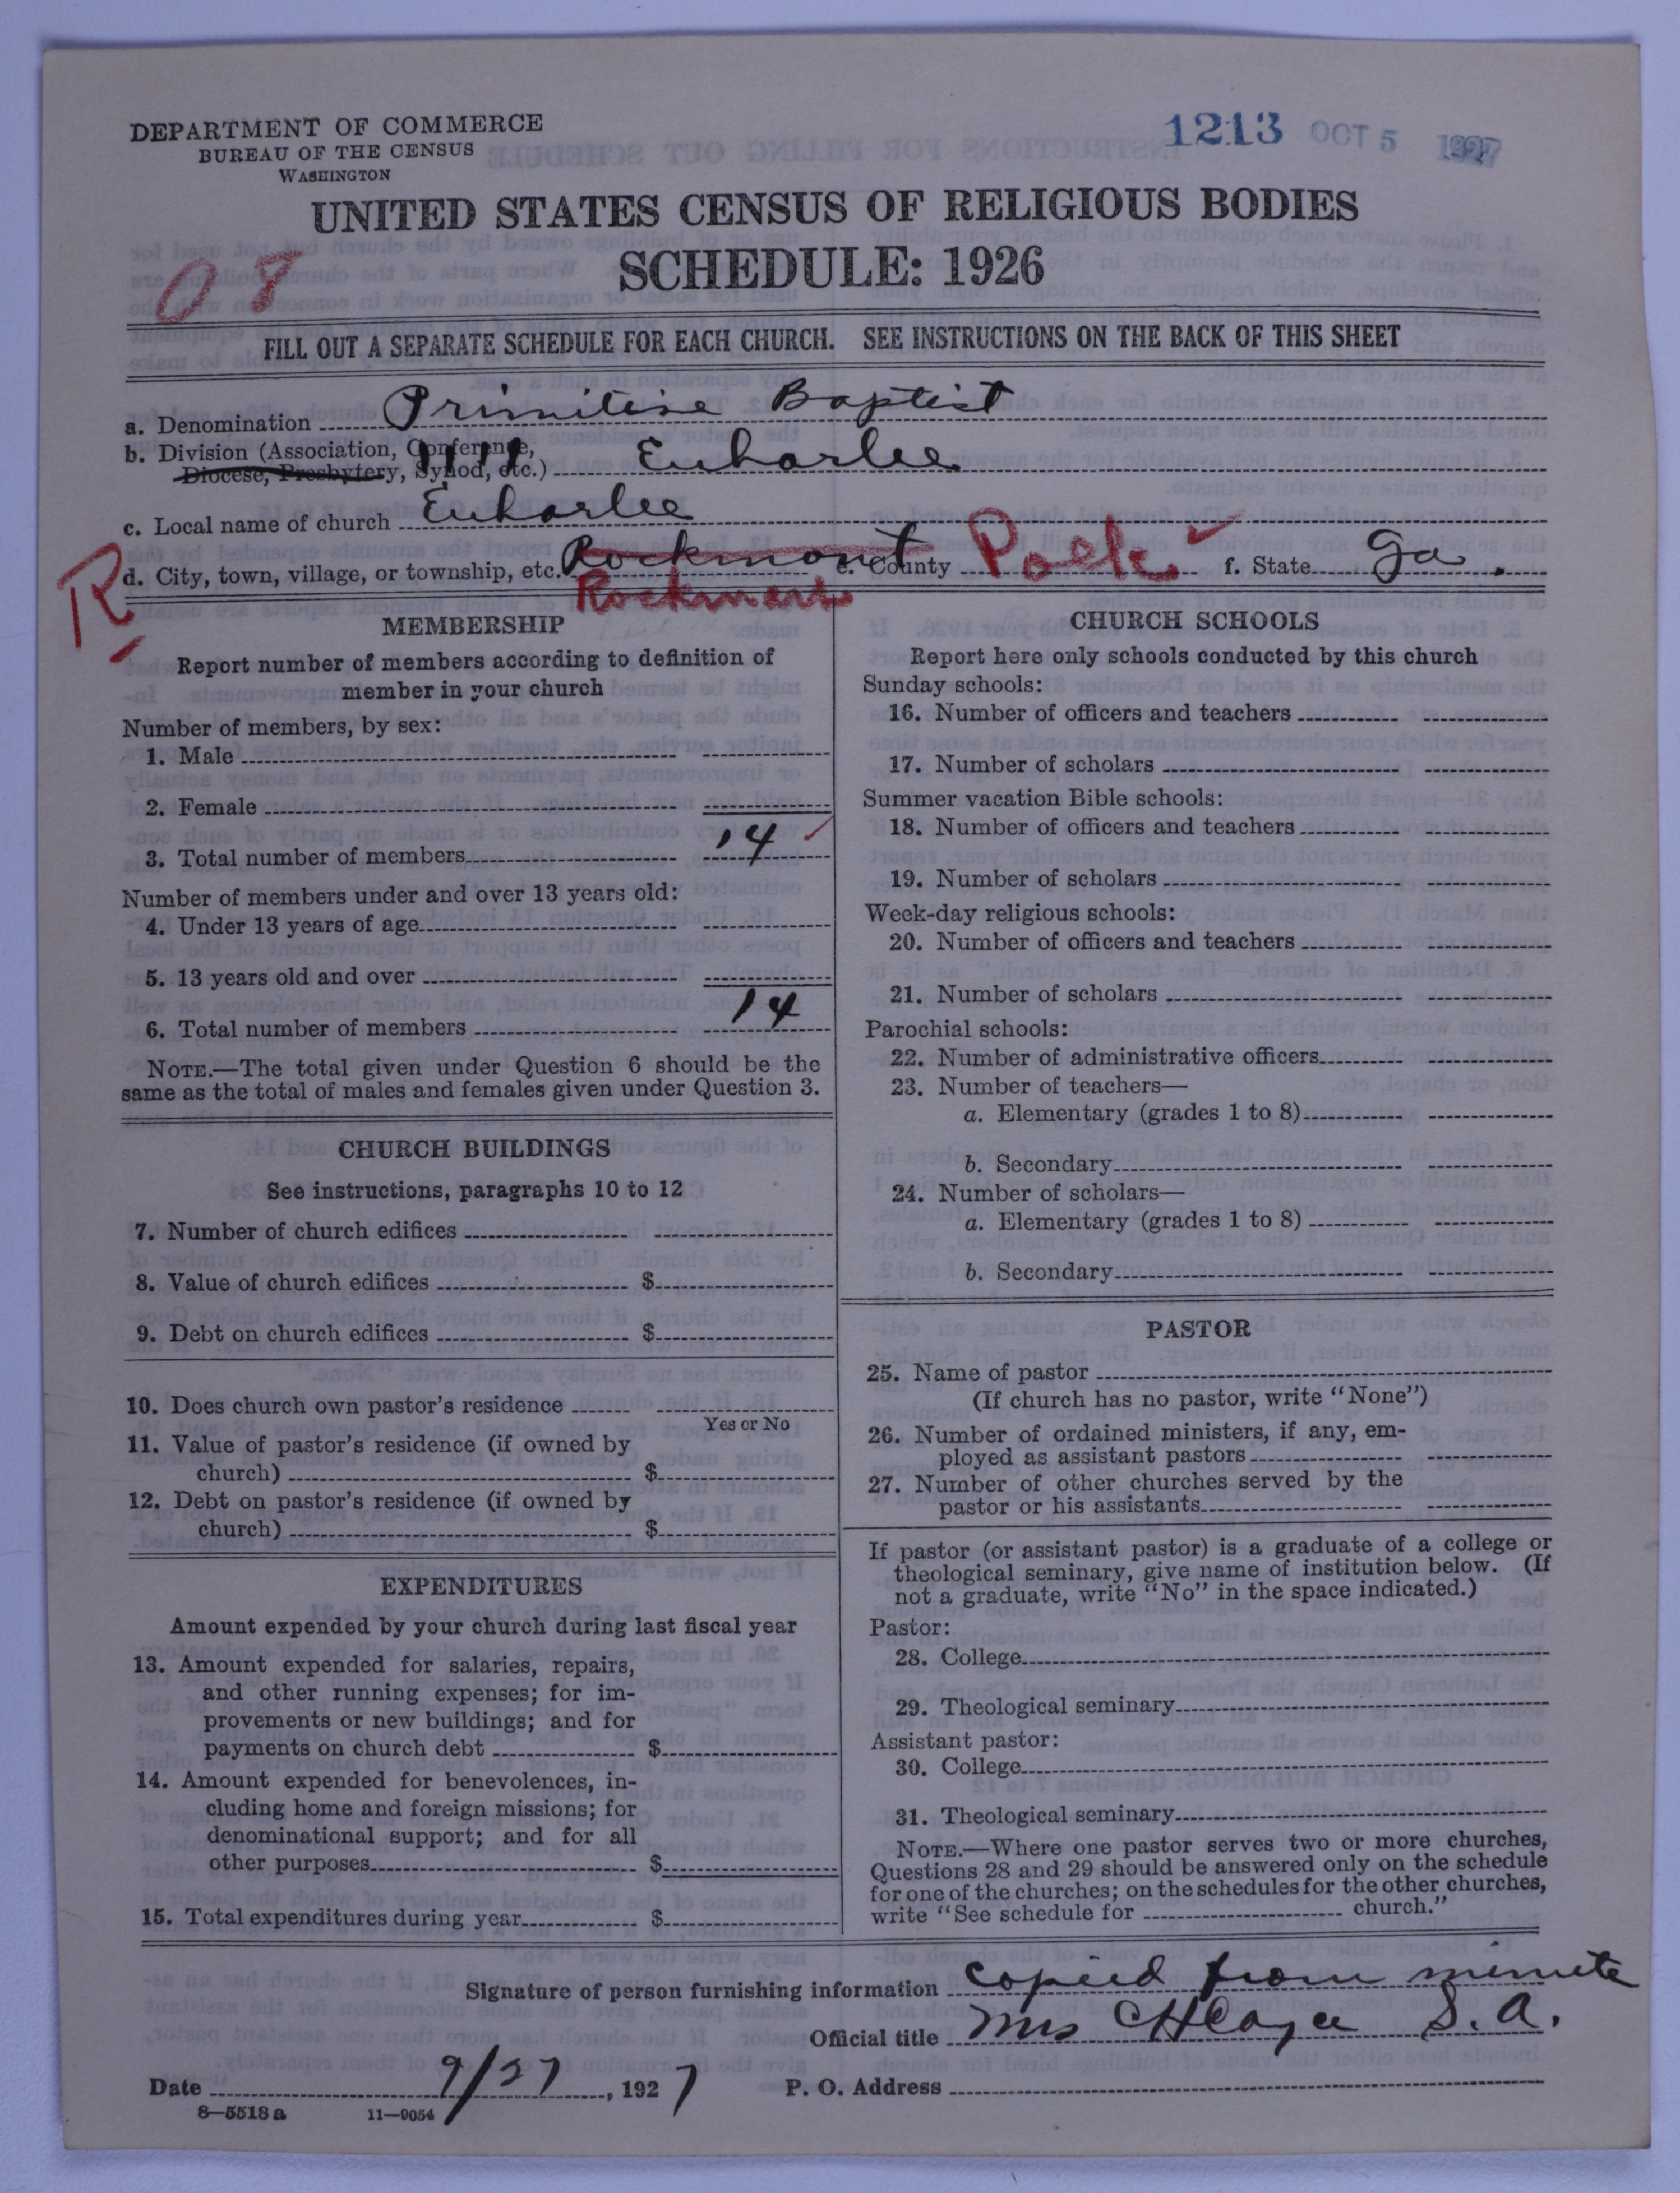 DEPARTMENT OF COMMERCE
BUREAU OF THE CENSUS
WASHINGTON
1213 OCT 5 1927
UNITED STATES CENSUS OF RELIGIOUS BODIES
SCHEDULE: 1926
08
FILL OUT A SEPARATE SCHEDULE FOR EACH CHURCH. SEE INSTRUCTIONS ON THE BACK OF THIS SHEET
a. Denomination Primitive Baptist
b. Division (Association, Conference,
Diocese, Presbytery, Synod, etc.) Euharlee
c. Local name of church Euharlee
R
d. City, town, village, or township, etc. Rockmont e. County Polk f. State Ga.
Rockmart
MEMBERSHIP
Report number of members according to definition of
member in your church
Number of members, by sex:
1. Male
2. Female
3. Total number of members 14
Number of members under and over 13 years old:
4. Under 13 years of age
5. 13 years old and over
6. Total number of members 14
NOTE.—The total given under Question 6 should be the
same as the total of males and females given under Question 3.
CHURCH BUILDINGS
See instructions, paragraphs 10 to 12
7. Number of church edifices
8. Value of church edifices $
9. Debt on church edifices $
10. Does church own pastor's residence
Yes or No
11. Value of pastor's residence (if owned by
church) $
12. Debt on pastor's residence (if owned by
church) $
EXPENDITURES
Amount expended by your church during last fiscal year
13. Amount expended for salaries, repairs,
and other running expenses; for im-
provements or new buildings; and for
payments on church debt $
14. Amount expended for benevolences, in-
cluding home and foreign missions; for
denominational support; and for all
other purposes $
15. Total expenditures during year $
CHURCH SCHOOLS
Report here only schools conducted by this church
Sunday schools:
16. Number of officers and teachers
17. Number of scholars
Summer vacation Bible schools:
18. Number of officers and teachers
19. Number of scholars
Week-day religious schools:
20. Number of officers and teachers
21. Number of scholars
Parochial schools:
22. Number of administrative officers
23. Number of teachers—
a. Elementary (grades 1 to 8)
b. Secondary
24. Number of scholars—
a. Elementary (grades 1 to 8)
b. Secondary
PASTOR
25. Name of pastor
(If church has no pastor, write "None")
26. Number of ordained ministers, if any, em-
ployed as assistant pastors
27. Number of other churches served by the
pastor or his assistants
If pastor (or assistant pastor) is a graduate of a college or
theological seminary, give name of institution below. (If
not a graduate, write "No" in the space indicated.)
Pastor:
28. College
29. Theological seminary
Assistant pastor:
30. College
31. Theological seminary
NOTE.—Where one pastor serves two or more churches,
Questions 28 and 29 should be answered only on the schedule
for one of the churches; on the schedules for the other churches,
write "See schedule for church."
Signature of person furnishing information copied from minute
Official title Mrs S. A.
Date 9/27, 1927 P. O. Address
8—5518a 11—9054